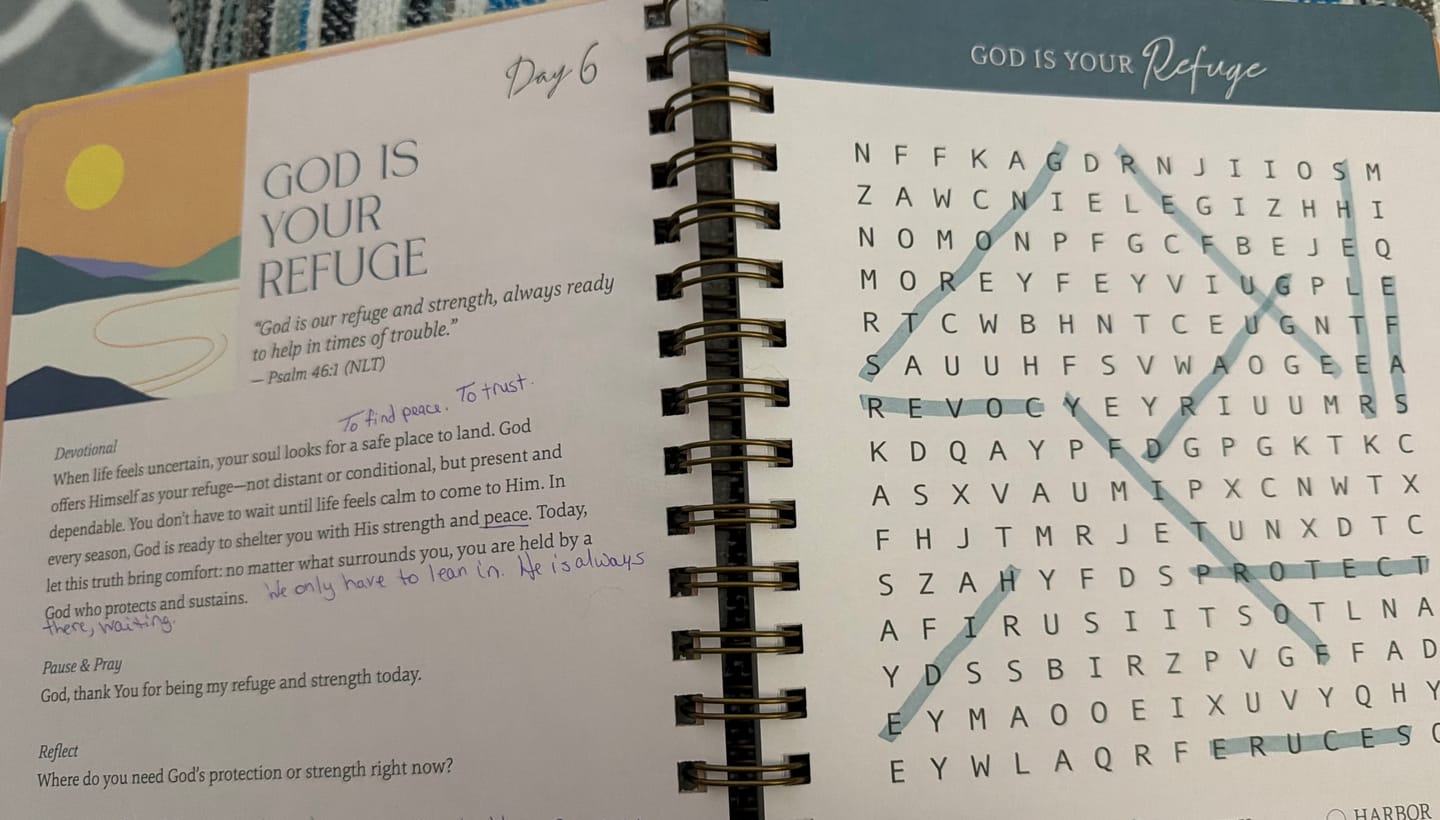 Day 6
GOD IS
YOUR
REFUGE
“God is our refuge and strength, always ready
to help in times of trouble.”
— Psalm 46:1 (NLT)
To find peace. To trust.
Devotional
When life feels uncertain, your soul looks for a safe place to land. God
offers Himself as your refuge—not distant or conditional, but present and
dependable. You don’t have to wait until life feels calm to come to Him. In
every season, God is ready to shelter you with His strength and peace. Today,
let this truth bring comfort: no matter what surrounds you, you are held by a
God who protects and sustains.
We only have to lean in. He is always
there, waiting.
Pause & Pray
God, thank You for being my refuge and strength today.
Reflect
Where do you need God’s protection or strength right now?
GOD IS YOUR Refuge
N F F K A G D R N J I I O S M
Z A W C N I E L E G I Z H H I
N O M O N P F G C F B E J E Q
M O R E Y F E Y V I U G P L E
R T C W B H N T C E U G N T F
S A U U H F S V W A O G E E A
R E V O C Y E Y R I U U M R S
K D Q A Y P F D G P G K T K C
A S X V A U M I P X C N W T X
F H J T M R J E T U N X D T C
S Z A H Y F D S P R O T E C T
A F I R U S I I T S O T L N A
Y D S S B I R Z P V G F F A D
E Y M A O O E I X U V Y Q H Y
E Y W L A Q R F E R U C E S
HARBOR